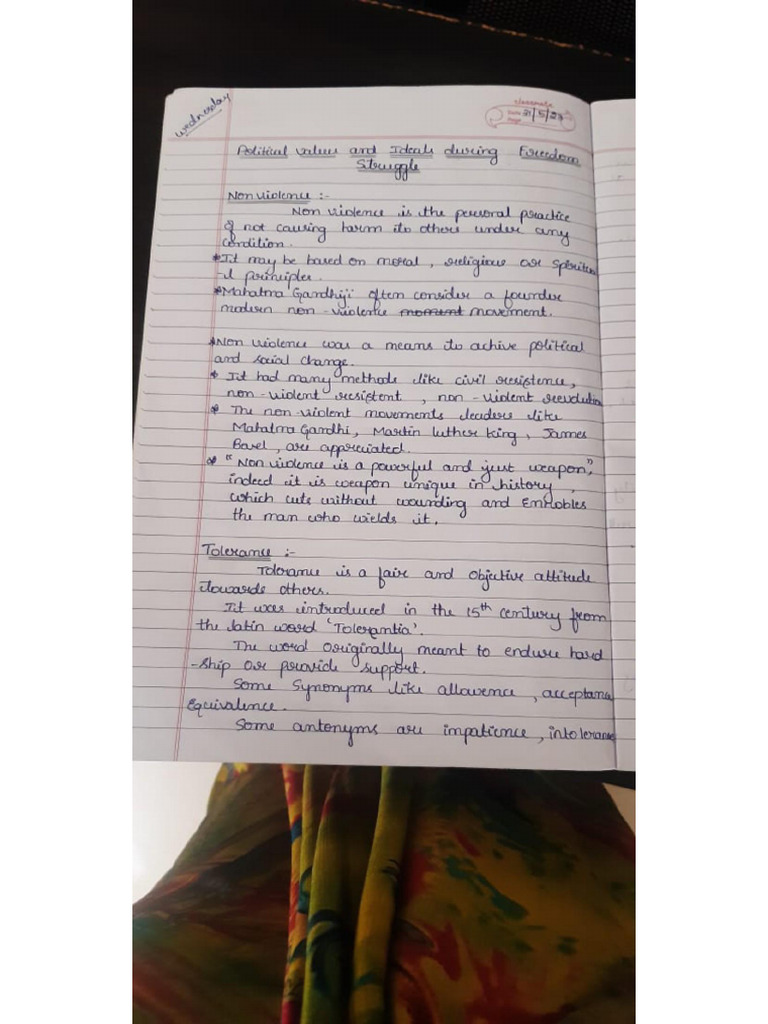 Wednesday
classmate
Date 31/5/23
Page
Political values and Ideals during Freedom
Struggle
Non violence :-
Non violence is the personal practice
of not causing harm to others under any
condition.
* It may be based on moral, religious or spiritua
-l principles.
* Mahatma Gandhiji often consider a founder
modern non-violence moment movement.
* Non violence was a means to achive political
and social change.
* It had many methods like civil resistence,
non-violent resistent, non-violent revolution
* The non-violent movements leaders like
Mahatma Gandhi, Martin luther king, James
Bavel, are appreciated.
* "Non violence is a powerful and just weapon,"
indeed it is weapon unique in history,
which cuts without wounding and EnNobles
the man who wields it.
Tolerance :-
Tolerance is a fair and objective attitude
towards others.
It was introduced in the 15th century from
the latin word 'Tolerantia'.
The word originally meant to endure hard
-ship or provide support.
Some Synonyms like allowence, acceptance
Equivalence.
Some antonyms are impatience, intolerance